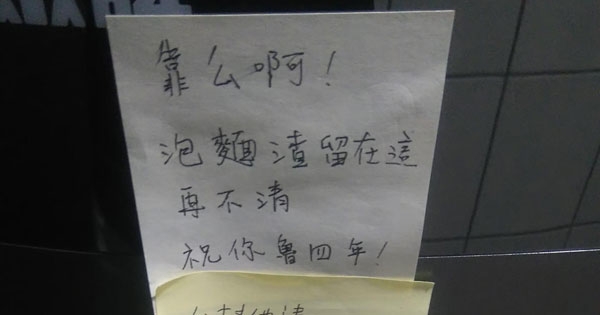 靠么啊！
泡麵渣留在這
再不清
祝你魯四年！